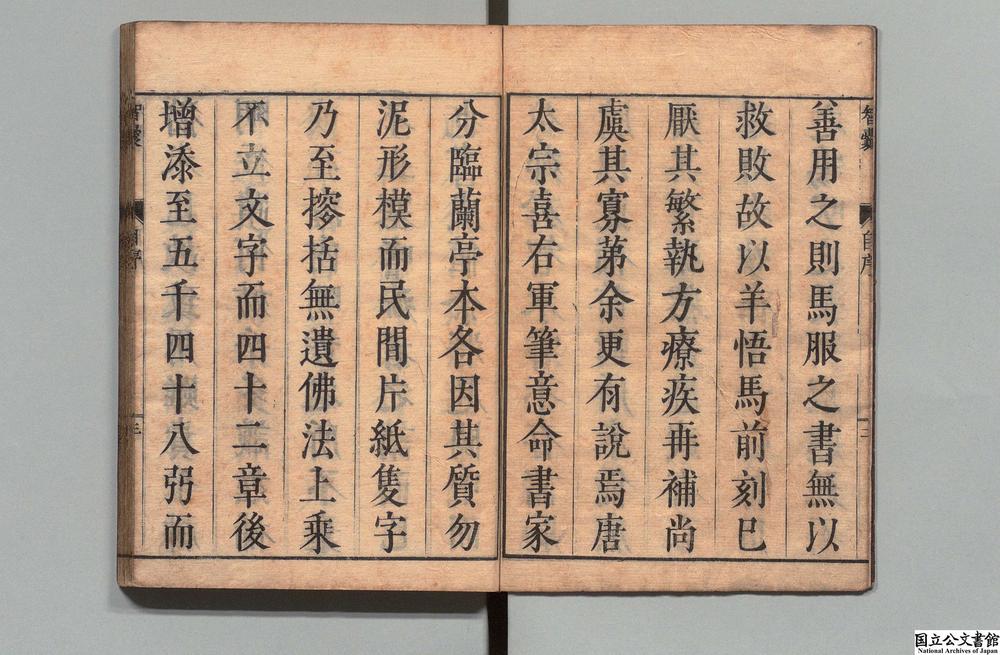 智囊 自序 二
善用之則馬服之書無以
救敗故以羊悟馬前刻已
厭其繁執方療疾再補尚
虞其寡第余更有說焉唐
太宗喜右軍筆意命書家
分臨蘭亭本各因其質勿
泥形模而民間片紙隻字
乃至搜括無遺佛法上乘
不立文字而四十二章後
增添至五千四十八弱而
智囊 自序 三
国立公文書館
National Archives of Japan